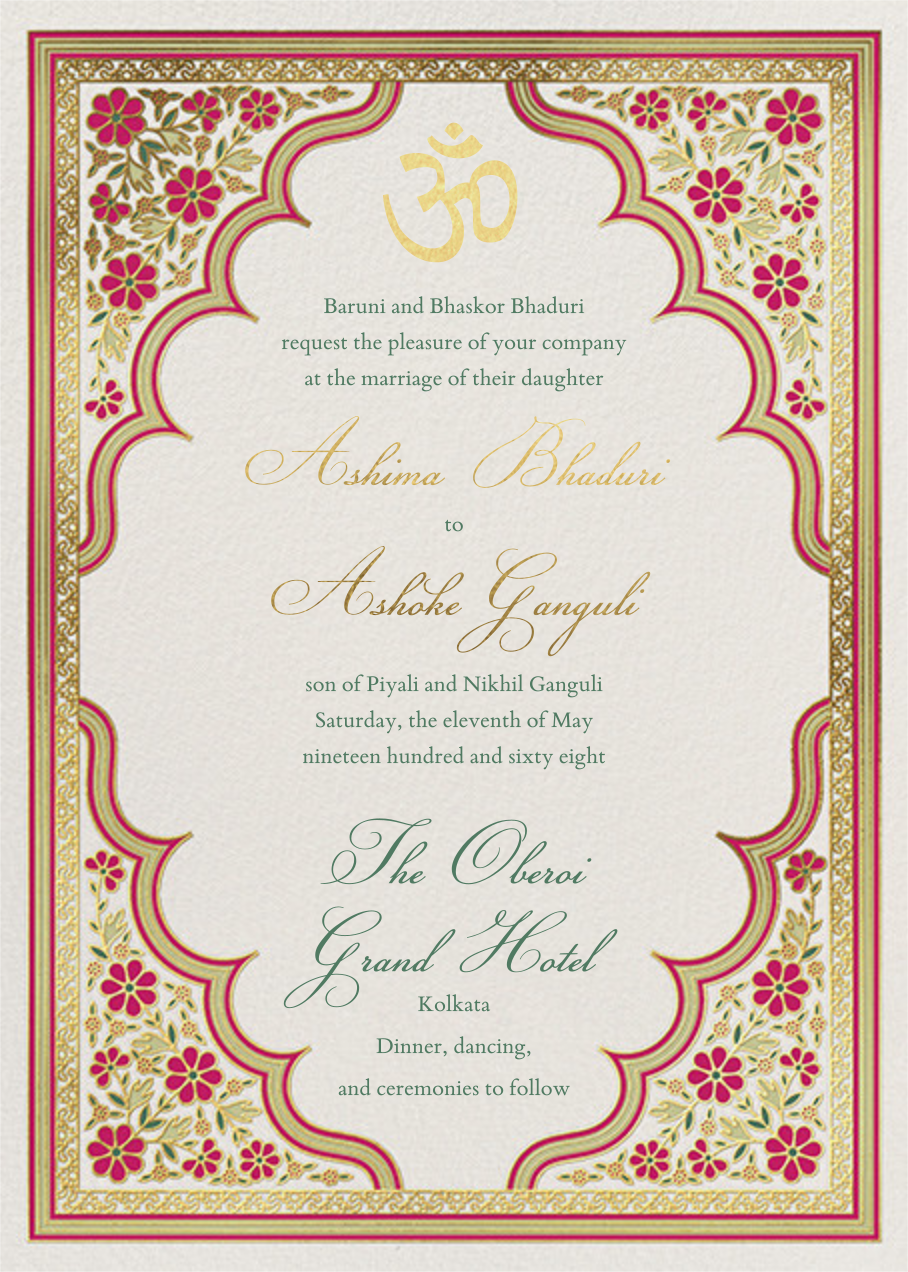 ॐ
Baruni and Bhaskor Bhaduri
request the pleasure of your company
at the marriage of their daughter
Ashima Bhaduri
to
Ashoke Ganguli
son of Piyali and Nikhil Ganguli
Saturday, the eleventh of May
nineteen hundred and sixty eight
The Oberoi
Grand Hotel
Kolkata
Dinner, dancing,
and ceremonies to follow